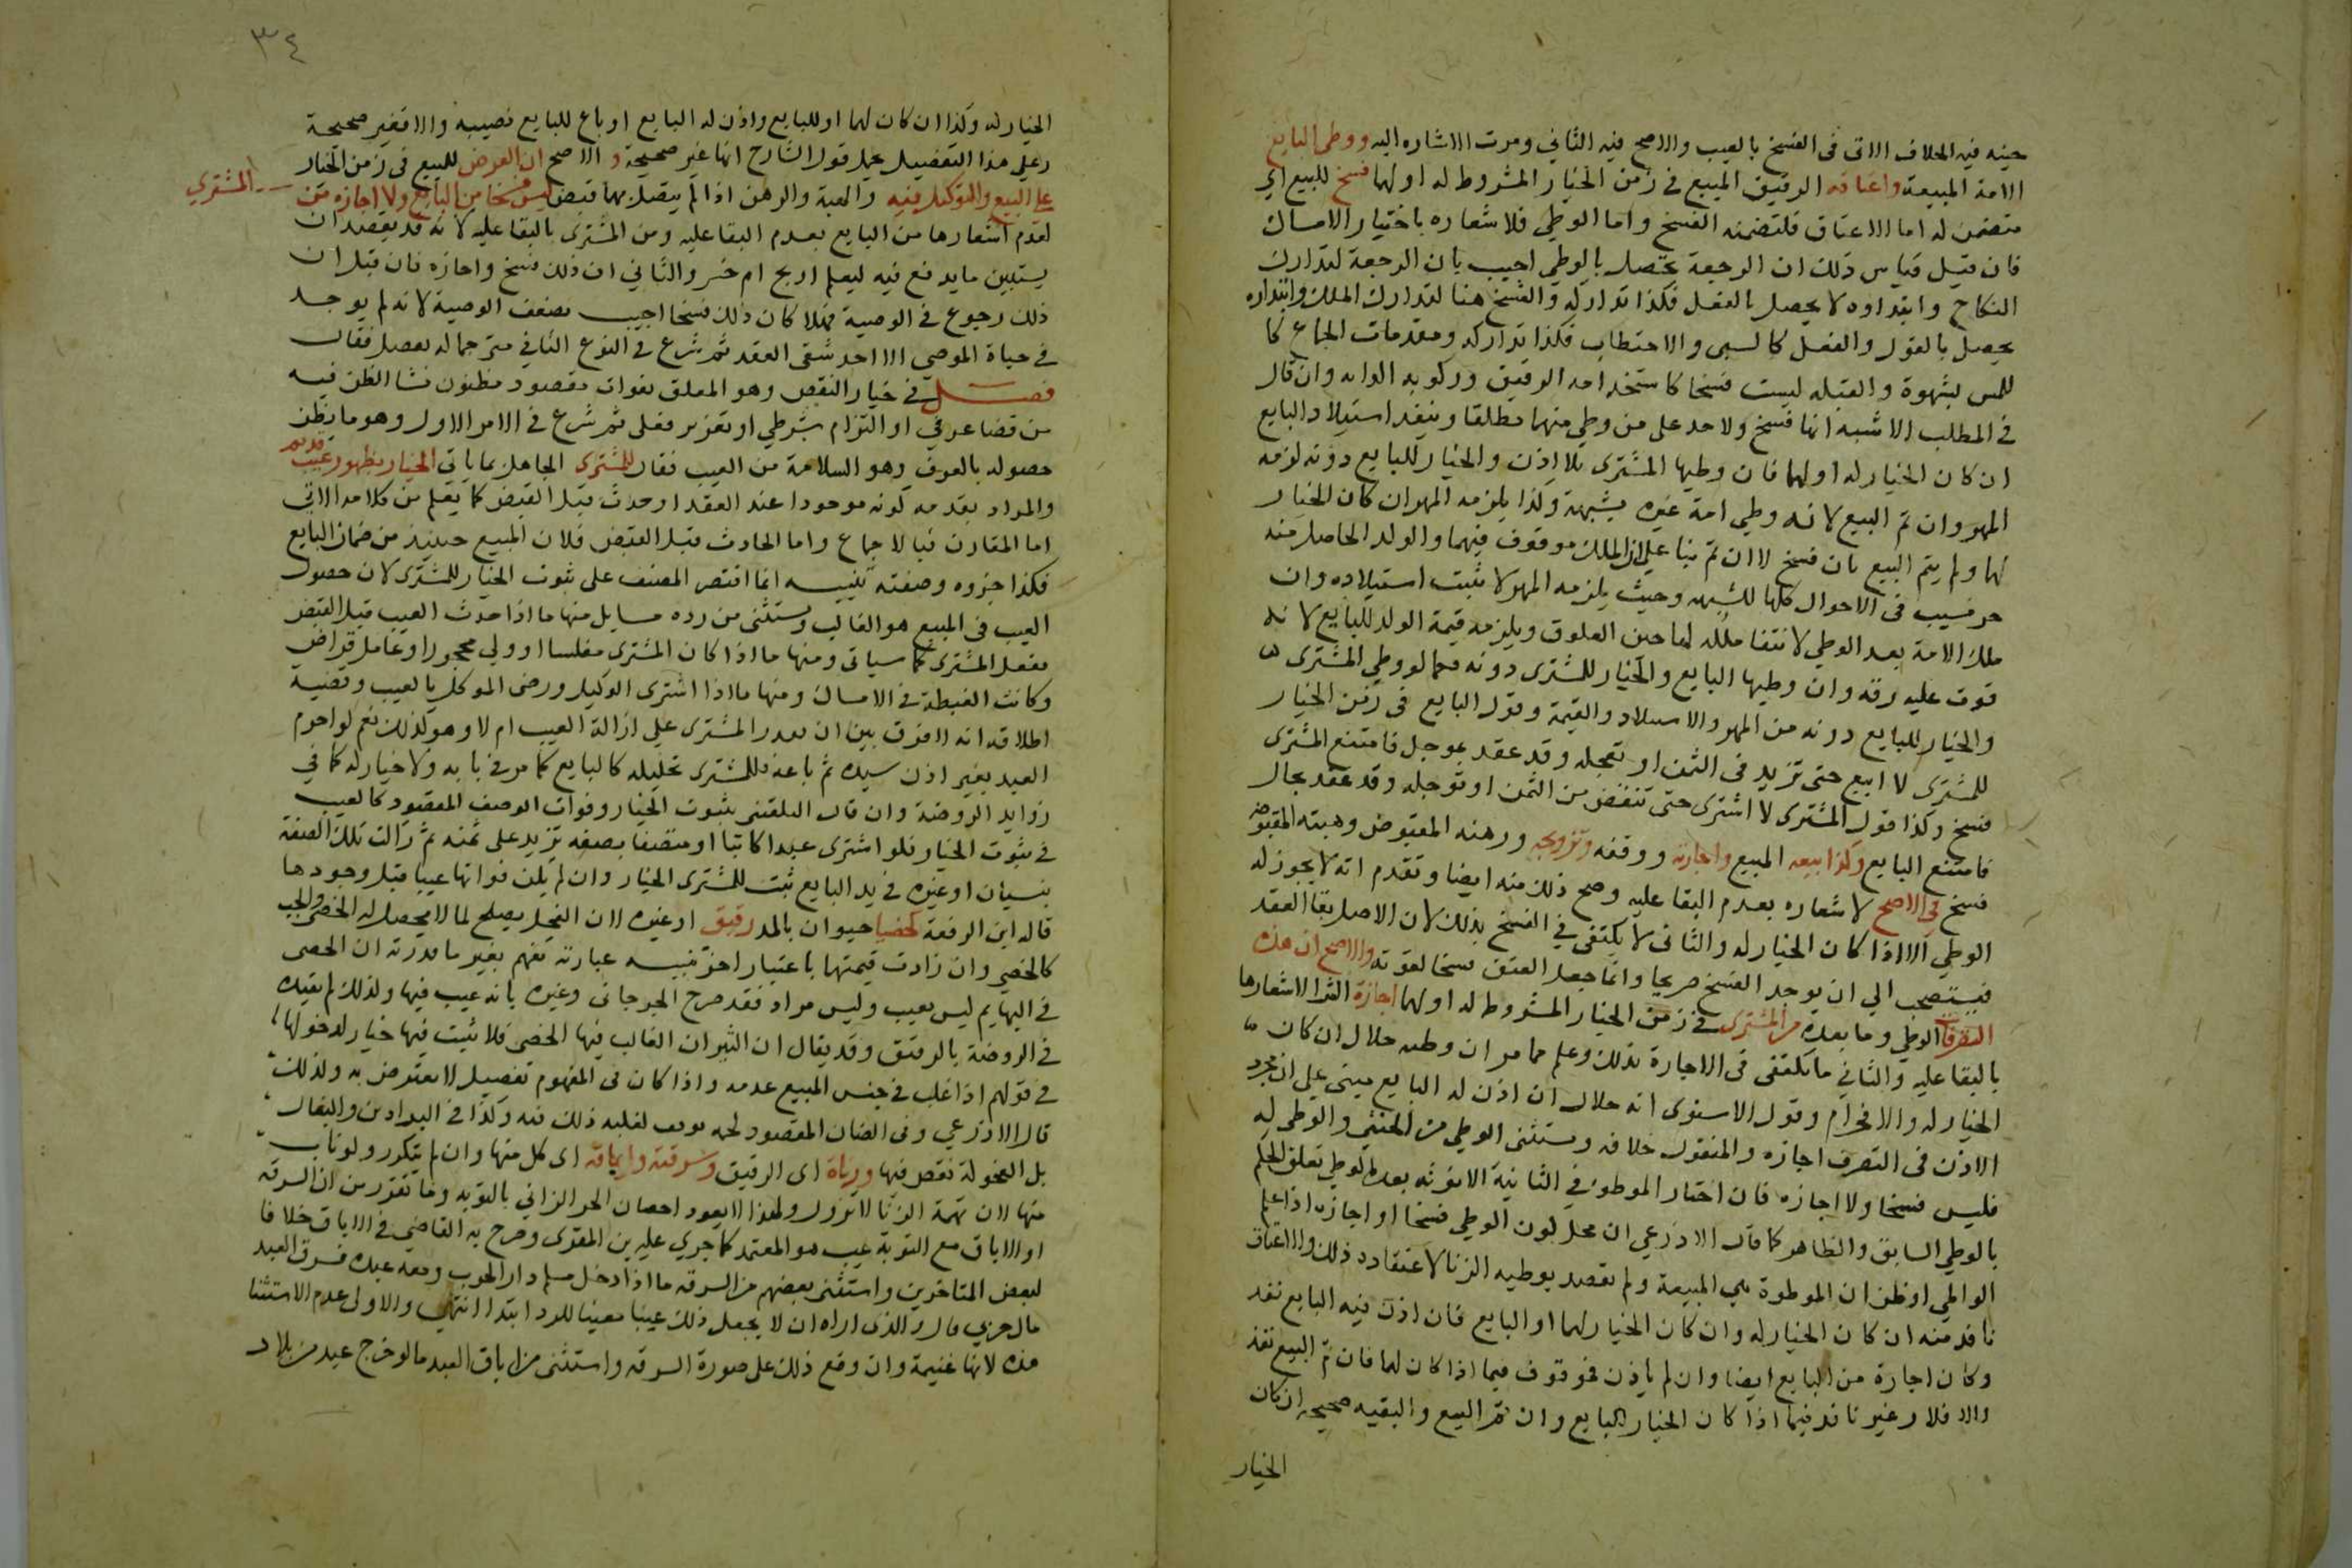 حينه فيه الخلاف الاتي في الفسخ بالعيب والاصح فيه الثاني ومرت الاشاره اليه ووطى البايع
الامة المبيعة واعتاقه الرقيق المبيع في زمن الخيار المشروط له او لهما فسخ للبيع اي
متضمن له اما الاعتاق فلتضمنه الفسخ واما الوطي فلاشعاره باختيار الامساك
فان قيل قياس ذلك ان الرجعة تحصل بالوطي اجيب بان الرجعة لتدارك
النكاح وابتداوه لا يحصل بالفعل فكذا تداركه والفسخ هنا لتدارك الملك وابتداوه
يحصل بالقول والفعل كالسبي والاحتطاب فكذا تداركه ومقدمات الجماع كا
للمس بشهوة والقبلة ليست فسخا كاستخدامه الرقيق وركوبه الدابه وان قال
في المطلب الاشبه انها فسخ ولا حد على من وطي منهما مطلقا وينفذ استيلاد البايع
ان كان الخيار له او لهما فان وطيها المشترى بلا اذن والخيار للبايع دونه لزمه
المهر وان تم البيع لانه وطي امة غيره بشبهة وكذا يلزمه المهر ان كان الخيار
لهما ولم يتم البيع بان فسخ لا ان تم بنا على ان الملك موقوف فيهما والولد الحاصل منه
حر نسيب في الاحوال كلها للشبهه وحيث يلزمه المهر لا يثبت استيلاده وان
ملك الامة بعد الوطي لانتفا ملكه لها حين العلوق ويلزمه قيمة الولد للبايع لانه
فوت عليه رقه وان وطيها البايع والخيار للمشترى دونه فكما لو وطي المشترى
والخيار للبايع دونه من المهر والاستيلاد والقيمة وقول البايع في زمن الخيار
للمشترى لا ابيع حتى تزيد في الثمن او تعجله وقد عقد بموجل فامتنع المشترى
فسخ وكذا قول المشترى لا اشترى حتى تنقص من الثمن او توجله وقد عقد بحال
فامتنع البايع وكذا بيعه المبيع واجارته ووقفه وتزويجه ورهنه المقبوض وهبته المقبوضه
فسخ في الاصح لاشعاره بعدم البقا عليه وصح ذلك منه ايضا وتقدم انه لا يجوز له
الوطي الا اذا كان الخيار له والثاني لا يكتفى في الفسخ بذلك لان الاصل بقا العقد
فيستصحب الي ان يوجد الفسخ صريحا وانما جعل العتق فسخا لقوته والاصح ان هذه
التصرفات الوطي وما بعده من المشترى في زمن الخيار المشروط له او لهما اجازة للشرا لاشعارها
بالبقا عليه والثاني ما يكتفى في الاجازة بذلك وعلم مما مر ان وطيه حلال ان كان
الخيار له والا فحرام وقول الاسنوى انه حلال ان اذن له البايع مبني علي ان مجرد
الاذن في التصرف اجازه والمنقول خلافه ويستثنى الوطي من الخنثي والوطي له
فليس فسخا ولا اجازه فان اختار الموطوء في الثانية الانوثه بعده الوطي تعلق الحكم
بالوطي السابق والظاهر كما قال الاذرعي ان محل كون الوطي فسخا او اجازه اذا علم
الواطي او ظن ان الموطوة هي المبيعة ولم يقصد بوطيه الزنا لاعتقاد ذلك والاعتاق
نافذ منه ان كان الخيار له وان كان الخيار لهما او البايع فان اذن فيه البايع نفذ
وكان اجازة من البايع ايضا وان لم ياذن فموقوف فيما اذا كان لهما فان تم البيع نفذ
والا فلا وغير نافذ فيما اذا كان الخيار للبايع وان تم البيع والبقيه صحيحه ان كان
الخيار
٣٤
الخيار له وكذا ان كان لهما او للبايع واذن له البايع او باع للبايع نصيبه والا فغير صحيحة
وعلى هذا التفصيل يحمل قول الشارح انها غير صحيحة و الاصح ان العرض للمبيع في زمن الخيار
علي البيع والتوكيل فيه والهبة والرهن اذا لم يتصل بهما قبض ليس فسخا من البايع ولا اجازه من
المشتري
لعدم اشعارها من البايع بعدم البقا عليه ومن المشترى بالبقا عليه لانه قد يقصد ان
يستبين ما يدفع فيه ليعلم اربح ام خسر والثاني ان ذلك فسخ واجازه فان قيل ان
ذلك رجوع في الوصية فهلا كان ذلك فسخا اجيب بضعف الوصية لانه لم يوجد
في حياة الموصي الا احد شقي العقد ثم شرع في النوع الثاني مترجما له بفصل فقال
فصل في خيار النقص وهو المعلق بفوات مقصود مظنون نشا الظن فيه
من قضا عرفي او التزام شرطي او تغرير فعلي ثم شرع في الامر الاول وهو ما يظن
حصوله بالعرف وهو السلامة من العيب فقال للمشترى الجاهل بما ياتي الخيار بظهور عيب قديم
والمراد بقدمه كونه موجودا عند العقد او حدث قبل القبض كما يعلم من كلامه الاتي
اما المقارن فبالاجماع واما الحادث قبل القبض فلان المبيع حينيذ من ضمان البايع
فكذا جزوه وصفته تنبيه انما اقتصر المصنف على ثبوت الخيار للمشترى لان حصول
العيب في المبيع هو الغالب ويستثنى من رده مسايل منها ما اذا حدث العيب قبل القبض
بفعل المشترى كما سياتى ومنها ما اذا كان المشترى مفلسا او ولي محجور او عامل قراض
وكانت الغبطة في الامساك ومنها ما اذا اشترى الوكيل ورضى الموكل بالعيب وقضية
اطلاقه انه لا فرق بين ان يقدر المشترى على ازالة العيب ام لا وهو كذلك نعم لو احرم
العبد بغير اذن سيده ثم باعه فللمشترى تحليله كالبايع كما مر في بابه ولا خيار له كما في
زوايد الروضة وان قال البلقينى بثبوت الخيار وفوات الوصف المقصود كالعيب
في ثبوت الخيار فلو اشترى عبدا كاتبا او متصفا بصفه تزيد على ثمنه ثم زالت تلك الصفة
بنسيان او غيره في يد البايع ثبت للمشترى الخيار وان لم يكن فواتها عيبا قبل وجودها
قاله ابن الرفعة كخصيا حيوان بالمد رقيق او غيره لان الفحل يصلح لما لا يصلح له الخصى والجب
كالخصي وان زادت قيمتها باعتبار اخر تنبيه عبارته تفهم بغير ما قدرته ان الخصى
في البهايم ليس بعيب وليس مراد فقد صرح الجرجاني وغيره بانه عيب فيها ولذلك لم يقيده
في الروضة بالرقيق وقد يقال ان الثيران الغالب فيها الخصى فلا يثبت فيها خيار لدخولها
في قولهم اذا غلب في جنس المبيع عدمه واذا كان في المفهوم تفصيل لا يعترض به ولذلك
قال الاذرعي وفي الضان المقصود لحمه لغلبه ذلك فيه وكذا في البراذين والبغال
بل الفحولة نقص فيها وزناه اى الرقيق وسرقته واباقه اى كل منها وان لم يتكرر ولو تاب
منها لان تهمة الزنا لا تزول ولهذا لا يعود احصان الحر الزاني بالتوبه وما تقرر من ان السرقه
او الاباق مع التوبة عيب هو المعتمد كما جرى عليه بن المقرى وصرح به القاضي في الاباق خلافا
لبعض المتاخرين واستثنى بعضهم من السرقه ما اذا دخل مسلم دار الحرب ومعه عبده فسرق العبد
مال حربي قال والذى اراه ان لا يجعل ذلك عيبا مفيتا للرد ابتدا انتهى والاولى عدم الاستثنا
هذه لانها غنيمة وان وقع ذلك على صورة السرقه واستثنى من اباق العبد ما لو خرج عبد من بلاد